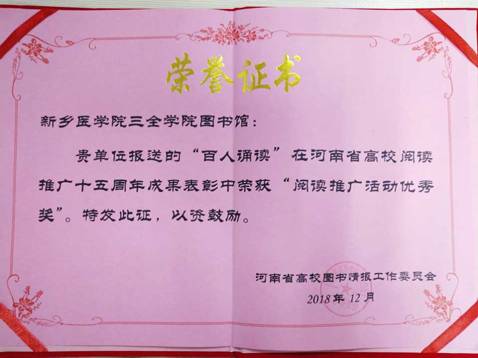 荣誉证书
新乡医学院三全学院图书馆：
贵单位报送的“百人诵读”在河南省高校阅读
推广十五周年成果表彰中荣获“阅读推广活动优秀
奖”。特发此证，以资鼓励。
河南省高校图书情报工作委员会
2018年12月